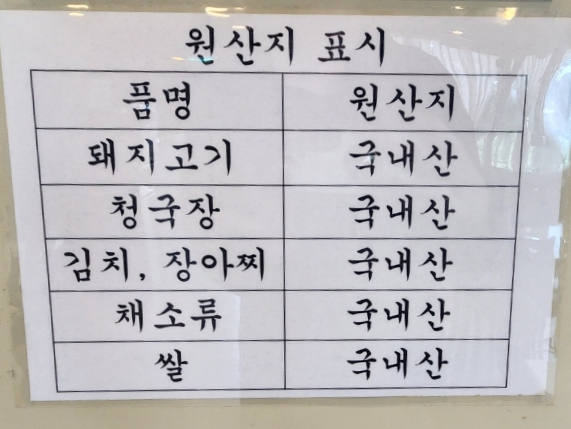 원산지 표시
품명 원산지
돼지고기 국내산
청국장 국내산
김치, 장아찌 국내산
채소류 국내산
쌀 국내산